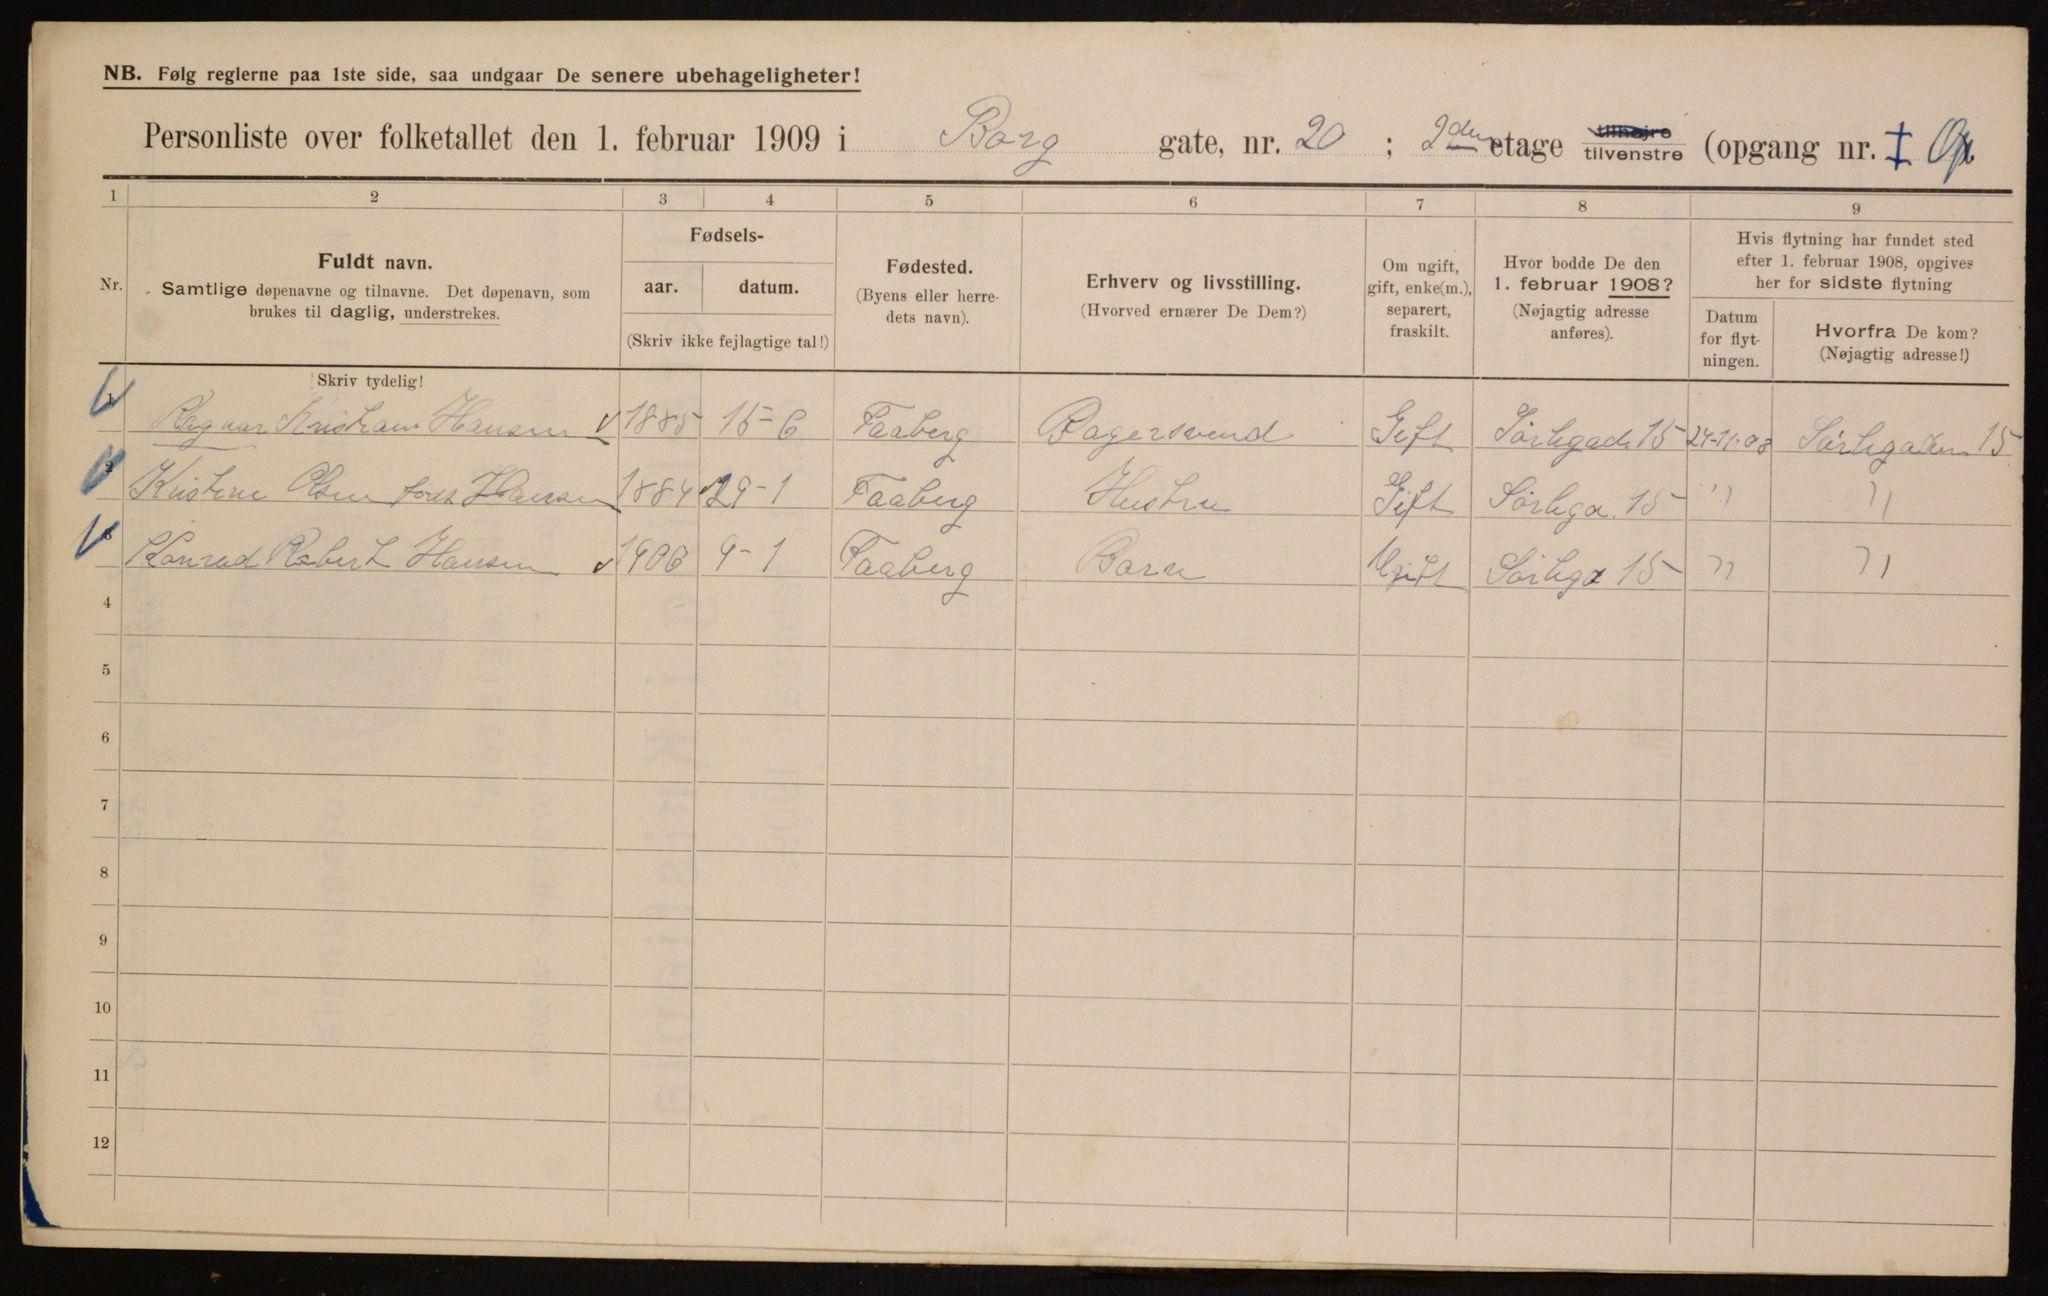 NB. Følg reglerne paa 1ste side, saa undgaar De senere ubehageligheter!
Personliste over folketallet den 1. februar 1909 i Borg gate, nr. 20 ; 2den etage tilhøjre tilvenstre (opgang nr. I
1 2 3 4 5 6 7 8 9
Nr.
Fuldt navn.
Samtlige døpenavne og tilnavne. Det døpenavn, som
brukes til daglig, understrekes.
Skriv tydelig!
Fødsels-
aar. datum.
(Skriv ikke fejlagtige tal!)
Fødested.
(Byens eller herre-
dets navn).
Erhverv og livsstilling.
(Hvorved ernærer De Dem?)
Om ugift,
gift, enke(m.),
separert,
fraskilt.
Hvor bodde De den
1. februar 1908?
(Nøjagtig adresse
anføres).
Hvis flytning har fundet sted
efter 1. februar 1908, opgives
her for sidste flytning
Datum
for flyt-
ningen.
Hvorfra De kom?
(Nøjagtig adresse!)
1 Ragnar Kristian Hansen 1885 15-6 Faaberg Bagersvend Gift Sørligada 15 24-11-08 Sørligaden 15
2 Kristine Olsen født Hansen 1884 29-1 Faaberg Hustru Gift Sørliga. 15 " "
3 Konrad Robert Hansen 1906 9-1 Faaberg Barn Ugift Sørliga 15 " "
4
5
6
7
8
9
10
11
12